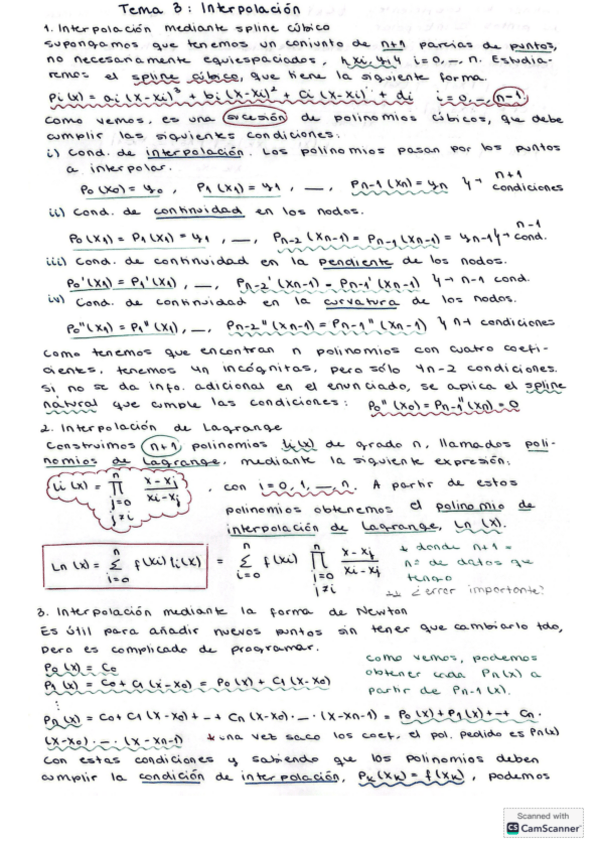 Tema 3: Interpolación
1. Interpolación mediante spline cúbico
supongamos que tenemos un conjunto de n+1 parejas de puntos,
no necesariamente equiespaciados, {xi, yi} i=0,—, n. Estudia-
remos el spline cúbico, que tiene la siguiente forma.
Pi(x) = ai(x-xi)³ + bi(x-xi)² + ci(x-xi) + di i=0,—, n-1
como vemos, es una sucesión de polinomios cúbicos, que debe
cumplir las siguientes condiciones:
i) Cond. de interpolación. Los polinomios pasan por los puntos
a interpolar.
P0(x0) = y0, P1(x1) = y1, —, Pn-1(xn) = yn } → n+1 condiciones
ii) Cond. de continuidad en los nodos.
P0(x1) = P1(x1) = y1, —, Pn-2(xn-1) = Pn-1(xn-1) = yn-1 } → n-1 cond.
iii) Cond. de continuidad en la pendiente de los nodos.
P0'(x1) = P1'(x1), —, Pn-2'(xn-1) = Pn-1'(xn-1) } → n-1 cond.
iv) Cond. de continuidad en la curvatura de los nodos.
P0''(x1) = P1''(x1), —, Pn-2''(xn-1) = Pn-1''(xn-1) } n-1 condiciones
como tenemos que encontrar n polinomios con cuatro coefi-
cientes, tenemos 4n incógnitas, pero sólo 4n-2 condiciones.
si no se da info. adicional en el enunciado, se aplica el spline
natural que cumple las condiciones: P0''(x0) = Pn-1''(xn) = 0
2. Interpolación de Lagrange
Construimos n+1 polinomios li(x) de grado n, llamados poli-
nomios de Lagrange, mediante la siguiente expresión:
li(x) = ∏ n j=0 j≠i x-xj / xi-xj, con i=0, 1, —, n. A partir de estos
polinomios obtenemos el polinomio de
interpolación de Lagrange, Ln(x).
Ln(x) = ∑ n i=0 f(xi) li(x) = ∑ n i=0 f(xi) ∏ n j=0 j≠i x-xj / xi-xj
* donde n+1 =
nº de datos que
tengo
¿error importante?
3. Interpolación mediante la forma de Newton
Es útil para añadir nuevos puntos sin tener que cambiarlo tdo,
pero es complicado de programar.
P0(x) = C0
P1(x) = C0 + C1(x-x0) = P0(x) + C1(x-x0)
como vemos, podemos
obtener cada Pn(x) a
partir de Pn-1(x).
⋮
Pn(x) = C0 + C1(x-x0) + — + Cn(x-x0)·—·(x-xn-1) = P0(x) + P1(x) + — + Cn·
(x-x0)·—·(x-xn-1) * una vez saco los coef, el pol. pedido es Pn(x)
Con estas condiciones y sabiendo que los polinomios deben
cumplir la condición de interpolación, Pk(xk) = f(xk), podemos
Scanned with
CS CamScanner